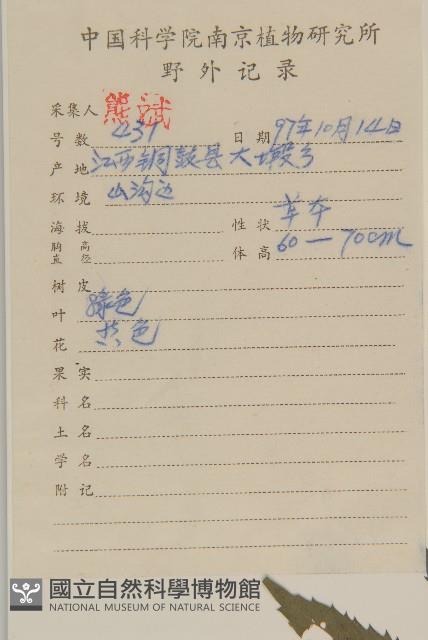 中国科学院南京植物研究所
野外记录
采集人 熊斌
号数 4231 日期 97年10月14日
产地 江西铜鼓县大塅乡
环境 山沟边
海拔 性状 草本
胸高直径 体高 60—70cm
树皮
叶 绿色
花 黄色
果实
科名
土名
学名
附记
國立自然科學博物館
NATIONAL MUSEUM OF NATURAL SCIENCE